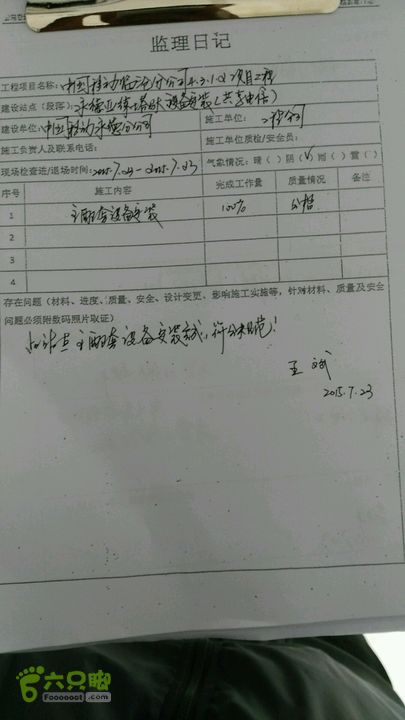 监理日记
工程项目名称：中国移动 分公司4.3.1 项目工程
建设站点（段落）： 设备安装（共享电信）
建设单位：中国移动 分公司 施工单位：工程公司
施工负责人及联系电话： 施工单位质检/安全员：
现场检查进/退场时间：2015.7.23－2015.7.23 气象情况：晴（ ）阴（√）雨（ ）雪（ ）
序号 施工内容 完成工作量 质量情况 备注
1 主配套设备安装 100% 合格
2
3
4
存在问题（材料、进度、质量、安全、设计变更、影响施工实施等，针对材料、质量及安全
问题必须附数码照片取证）
主配套设备安装完成，符合规范！
王斌
2015.7.23
六只脚
Foooooot.com